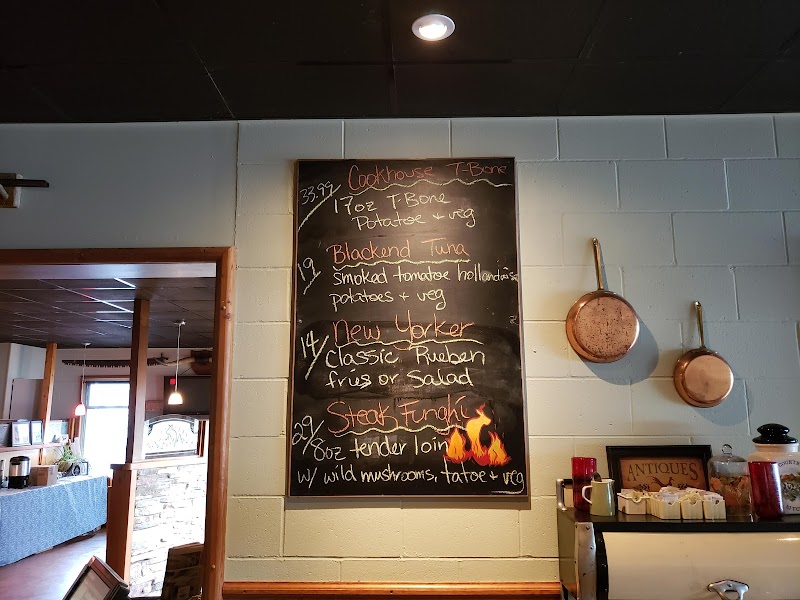 Cookhouse T-Bone
33.99/ 17oz T-Bone
Potatoe + veg
19/ Blackend Tuna
Smoked tomatoe hollandaise
potatoes + veg
14/ New Yorker
Classic Rueben
fries or Salad
29/ Steak Funghi
8oz tender loin
w/ wild mushrooms, tatoe + veg
ANTIQUES